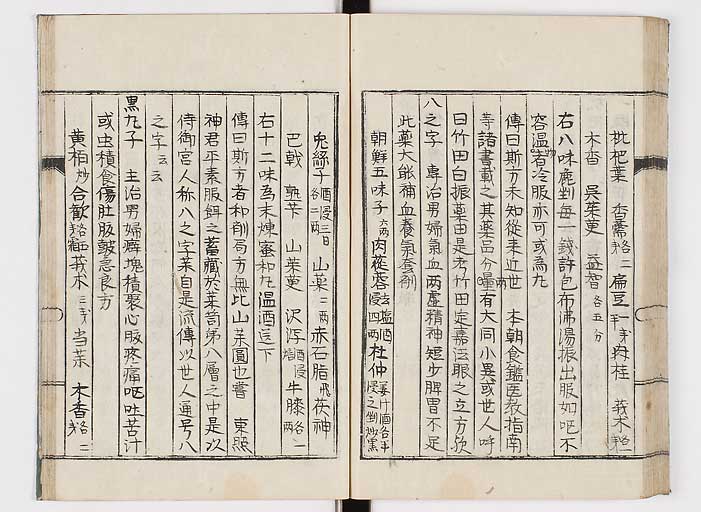 枇杷葉 香薷各二 扁豆一 肉桂 莪朮
木香 呉茱萸 益智各五分
右八味麁剉每一錢許包布沸湯振出服如吃不
容温者冷服亦可或為丸
傳曰斯方未知從来近世 本朝食鑑医教指南
寺諸書載之其藥品分量有大同小異或世人呼
曰竹田白振藥由是考竹田定嘉法眼之立方欤
八之字 專治男婦氣血両虚精神短少脾胃不足
此藥大能補血養氣
朝鮮五味子六両 肉蓯蓉 酒浸四両 杜仲
兔絲子酒浸三日各二両 山藥二両 赤石脂 茯神
巴戟 熟芐 山茱萸 沢泻酒浸 牛膝各一両
右十二味為末煉蜜和丸温酒送下
傳曰斯方者和剤局方無比山茱圓也嘗 東照
神君平素服餌之蓄藏於薬笥第八層之中是以
侍御宮人称八之字薬自是流傳以世人通号八
之字云云
黒丸子 主治男婦癖塊積聚心腹疼痛呕吐苦汁
或虫積食傷肚腹皷急良方
黄柏炒 合歓 莪朮三 当薬 木香各二